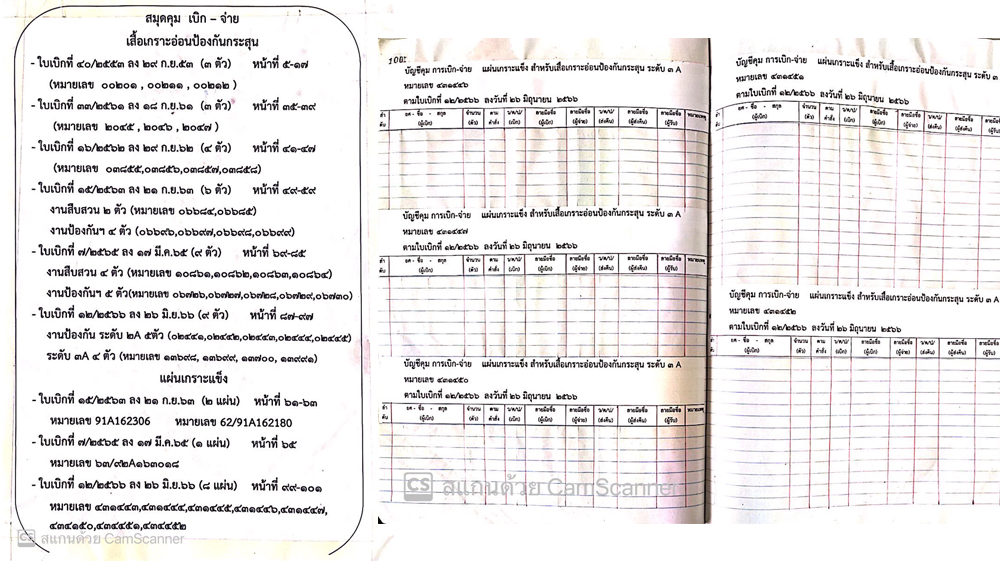 สมุดคุม เบิก – จ่าย
เสื้อเกราะอ่อนป้องกันกระสุน
- ใบเบิกที่ ๔๐/๒๕๕๓ ลง ๒๙ ก.ย.๕๓ (๓ ตัว) หน้าที่ ๕-๑๗
(หมายเลข ๐๐๒๐๑ , ๐๐๒๑๑ , ๐๐๒๑๒ )
- ใบเบิกที่ ๓๓/๒๕๖๑ ลง ๑๘ ก.ย.๖๑ (๓ ตัว) หน้าที่ ๓๕-๓๙
(หมายเลข ๒๐๔๕ , ๒๐๔๖ , ๒๐๔๗ )
- ใบเบิกที่ ๑๖/๒๕๖๒ ลง ๒๙ ก.ย.๖๒ (๔ ตัว) หน้าที่ ๔๑-๔๗
(หมายเลข ๐๓๘๕๕,๐๓๘๕๖,๐๓๘๕๗,๐๓๘๕๘)
- ใบเบิกที่ ๑๕/๒๕๖๓ ลง ๒๑ ก.ย.๖๓ (๖ ตัว) หน้าที่ ๔๙-๕๙
งานสืบสวน ๒ ตัว (หมายเลข ๐๖๖๘๔,๐๖๖๘๕)
งานป้องกันฯ ๔ ตัว (๐๖๖๙๖,๐๖๖๙๗,๐๖๖๙๘,๐๖๖๙๙)
- ใบเบิกที่ ๗/๒๕๖๕ ลง ๑๗ มี.ค.๖๕ (๙ ตัว) หน้าที่ ๖๙-๘๕
งานสืบสวน ๔ ตัว (หมายเลข ๑๐๘๖๑,๑๐๘๖๒,๑๐๘๖๓,๑๐๘๖๔)
งานป้องกันฯ ๕ ตัว(หมายเลข ๐๖๗๒๖,๐๖๗๒๗,๐๖๗๒๘,๐๖๗๒๙,๐๖๗๓๐)
- ใบเบิกที่ ๑๒/๒๕๖๖ ลง ๒๖ มิ.ย.๖๖ (๙ ตัว) หน้าที่ ๘๗-๙๗
งานป้องกัน ระดับ ๒A ๕ตัว (๐๒๔๔๑,๐๒๔๔๒,๐๒๔๔๓,๐๒๔๔๔,๐๒๔๔๕)
ระดับ ๓A ๔ ตัว (หมายเลข ๑๓๖๙๘, ๑๓๖๙๙, ๑๓๗๐๐, ๑๓๙๙๑)
แผ่นเกราะแข็ง
- ใบเบิกที่ ๑๕/๒๕๖๓ ลง ๒๑ ก.ย.๖๓ (๒ แผ่น) หน้าที่ ๖๑-๖๓
หมายเลข 91A162306 หมายเลข 62/91A162180
- ใบเบิกที่ ๗/๒๕๖๕ ลง ๑๗ มี.ค.๖๕ (๑ แผ่น) หน้าที่ ๖๕
- ใบเบิกที่ ๑๒/๒๕๖๖ ลง ๒๖ มิ.ย.๖๖ (๘ แผ่น) หน้าที่ ๙๙-๑๐๑
หมายเลข ๔๓๑๔๔๓,๔๓๑๔๔๔,๔๓๑๔๔๕,๔๓๑๔๔๖,๔๓๑๔๔๗,
๔๓๔๑๕๐,๔๓๔๔๕๑,๔๓๔๔๕๒
CS สแกนด้วย CamScanner
บัญชีคุม การเบิก-จ่าย แผ่นเกราะแข็ง สำหรับเสื้อเกราะอ่อนป้องกันกระสุน ระดับ ๓ A
หมายเลข ๔๓๑๔๔๖
ตามใบเบิกที่ ๑๒/๒๕๖๖ ลงวันที่ ๒๖ มิถุนายน ๒๕๖๖
ลำดับ ยศ - ชื่อ - สกุล (ผู้เบิก) จำนวน (ตัว) ตามคำสั่ง ว/ด/ป/ (เบิก) ลายมือชื่อ (ผู้เบิก) ลายมือชื่อ (ผู้จ่าย) ว/ด/ป/ (ส่งคืน) ลายมือชื่อ (ผู้ส่งคืน) ลายมือชื่อ (ผู้รับ) หมายเหตุ
บัญชีคุม การเบิก-จ่าย แผ่นเกราะแข็ง สำหรับเสื้อเกราะอ่อนป้องกันกระสุน ระดับ ๓ A
หมายเลข ๔๓๑๔๔๗
ตามใบเบิกที่ ๑๒/๒๕๖๖ ลงวันที่ ๒๖ มิถุนายน ๒๕๖๖
ลำดับ ยศ - ชื่อ - สกุล (ผู้เบิก) จำนวน (ตัว) ตามคำสั่ง ว/ด/ป/ (เบิก) ลายมือชื่อ (ผู้เบิก) ลายมือชื่อ (ผู้จ่าย) ว/ด/ป/ (ส่งคืน) ลายมือชื่อ (ผู้ส่งคืน) ลายมือชื่อ (ผู้รับ) หมายเหตุ
บัญชีคุม การเบิก-จ่าย แผ่นเกราะแข็ง สำหรับเสื้อเกราะอ่อนป้องกันกระสุน ระดับ ๓ A
หมายเลข ๔๓๑๔๕๐
ตามใบเบิกที่ ๑๒/๒๕๖๖ ลงวันที่ ๒๖ มิถุนายน ๒๕๖๖
ลำดับ ยศ - ชื่อ - สกุล (ผู้เบิก) จำนวน (ตัว) ตามคำสั่ง ว/ด/ป/ (เบิก) ลายมือชื่อ (ผู้เบิก) ลายมือชื่อ (ผู้จ่าย) ว/ด/ป/ (ส่งคืน) ลายมือชื่อ (ผู้ส่งคืน) ลายมือชื่อ (ผู้รับ) หมายเหตุ
CS สแกนด้วย CamScanner
บัญชีคุม การเบิก-จ่าย แผ่นเกราะแข็ง สำหรับเสื้อเกราะอ่อนป้องกันกระสุน ระดับ ๓
หมายเลข ๔๓๑๔๕๑
ตามใบเบิกที่ ๑๒/๒๕๖๖ ลงวันที่ ๒๖ มิถุนายน ๒๕๖๖
ยศ - ชื่อ - สกุล (ผู้เบิก) จำนวน (ตัว) ตามคำสั่ง ว/ด/ป/ (เบิก) ลายมือชื่อ (ผู้เบิก) ลายมือชื่อ (ผู้จ่าย) ว/ด/ป/ (ส่งคืน) ลายมือชื่อ (ผู้ส่งคืน) ลายมือชื่อ (ผู้รับ)
บัญชีคุม การเบิก-จ่าย แผ่นเกราะแข็ง สำหรับเสื้อเกราะอ่อนป้องกันกระสุน ระดับ ๓ A
หมายเลข ๔๓๑๔๕๒
ตามใบเบิกที่ ๑๒/๒๕๖๖ ลงวันที่ ๒๖ มิถุนายน ๒๕๖๖
ยศ - ชื่อ - สกุล (ผู้เบิก) จำนวน (ตัว) ตามคำสั่ง ว/ด/ป/ (เบิก) ลายมือชื่อ (ผู้เบิก) ลายมือชื่อ (ผู้จ่าย) ว/ด/ป/ (ส่งคืน) ลายมือชื่อ (ผู้ส่งคืน) ลายมือชื่อ (ผู้รับ)